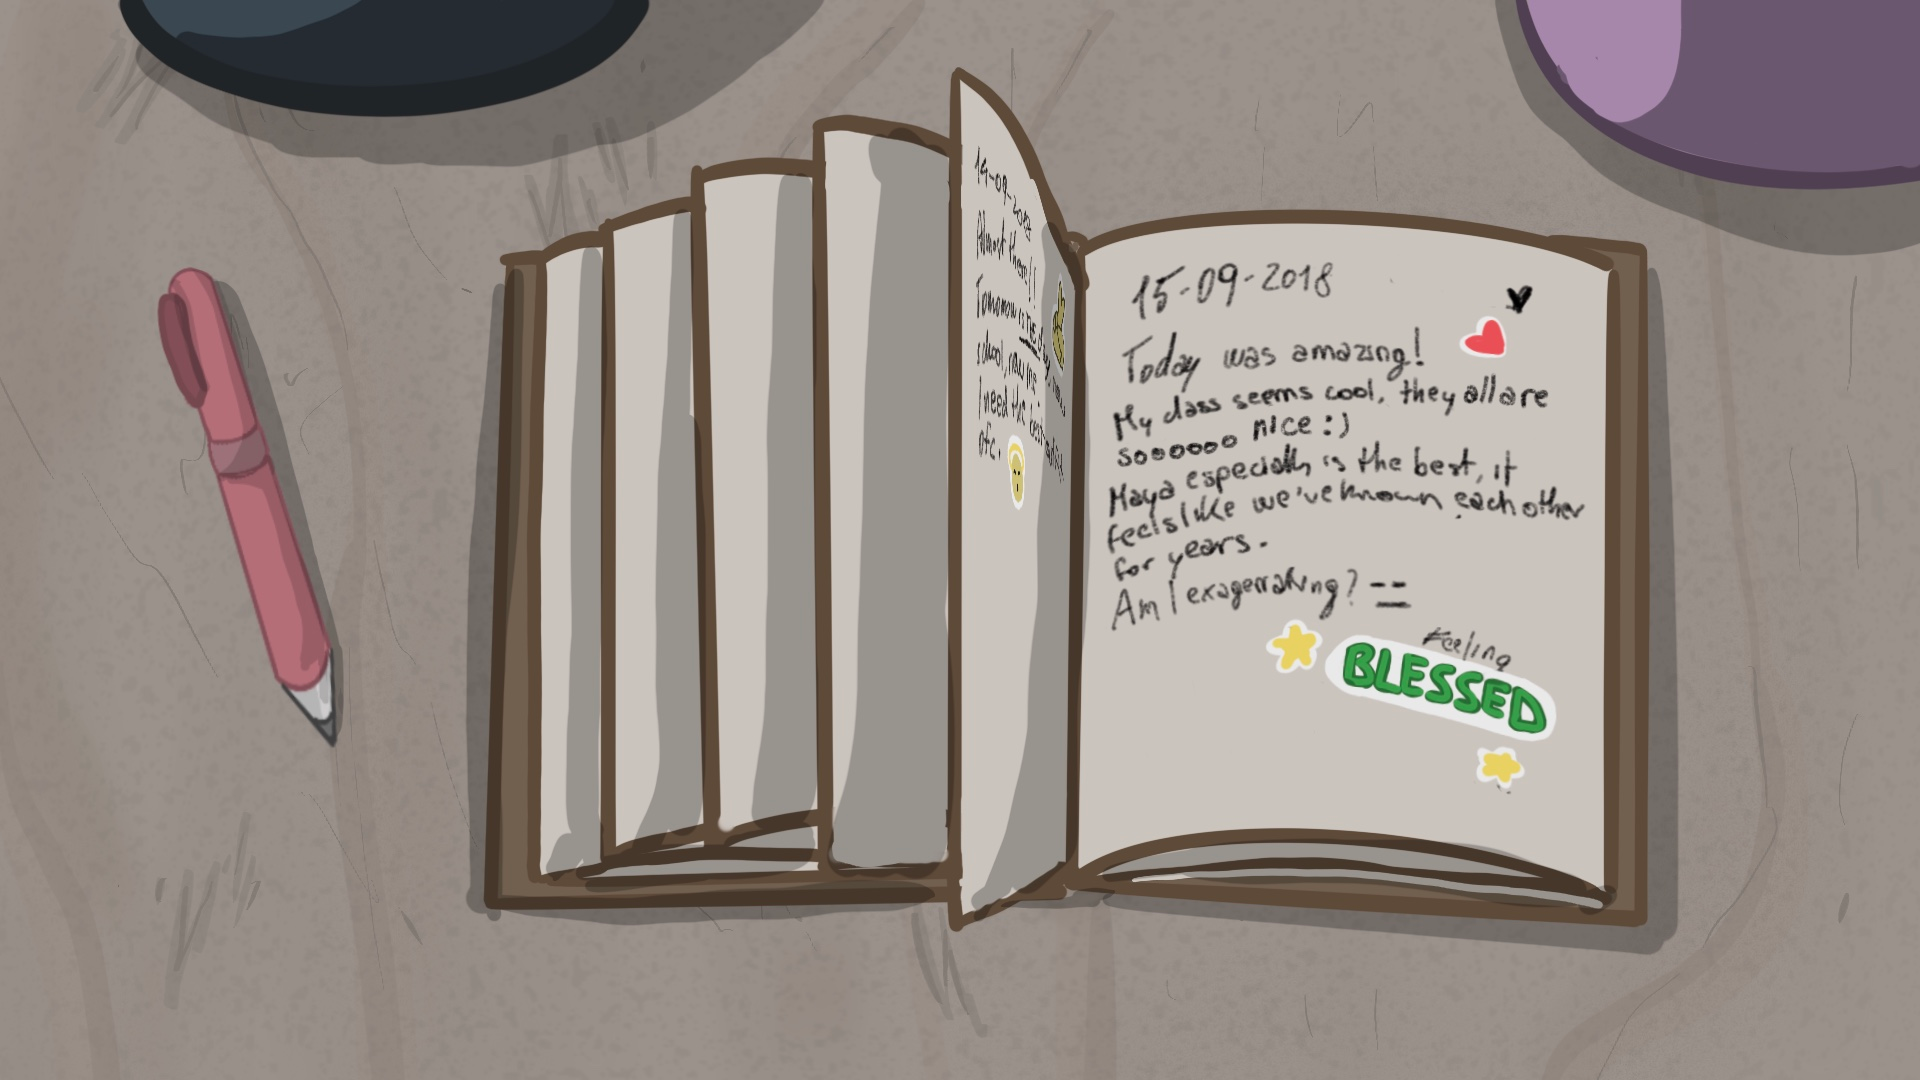 14-09-2018
Almost there!!
Tomorrow is THE day, new
school, new me.
I need the best outfit
ofc.
15-09-2018
Today was amazing!
My class seems cool, they all are
soooooo nice :)
Maya especially is the best, it
feels like we've known each other
for years.
Am I exagerrating? --
Feeling
BLESSED